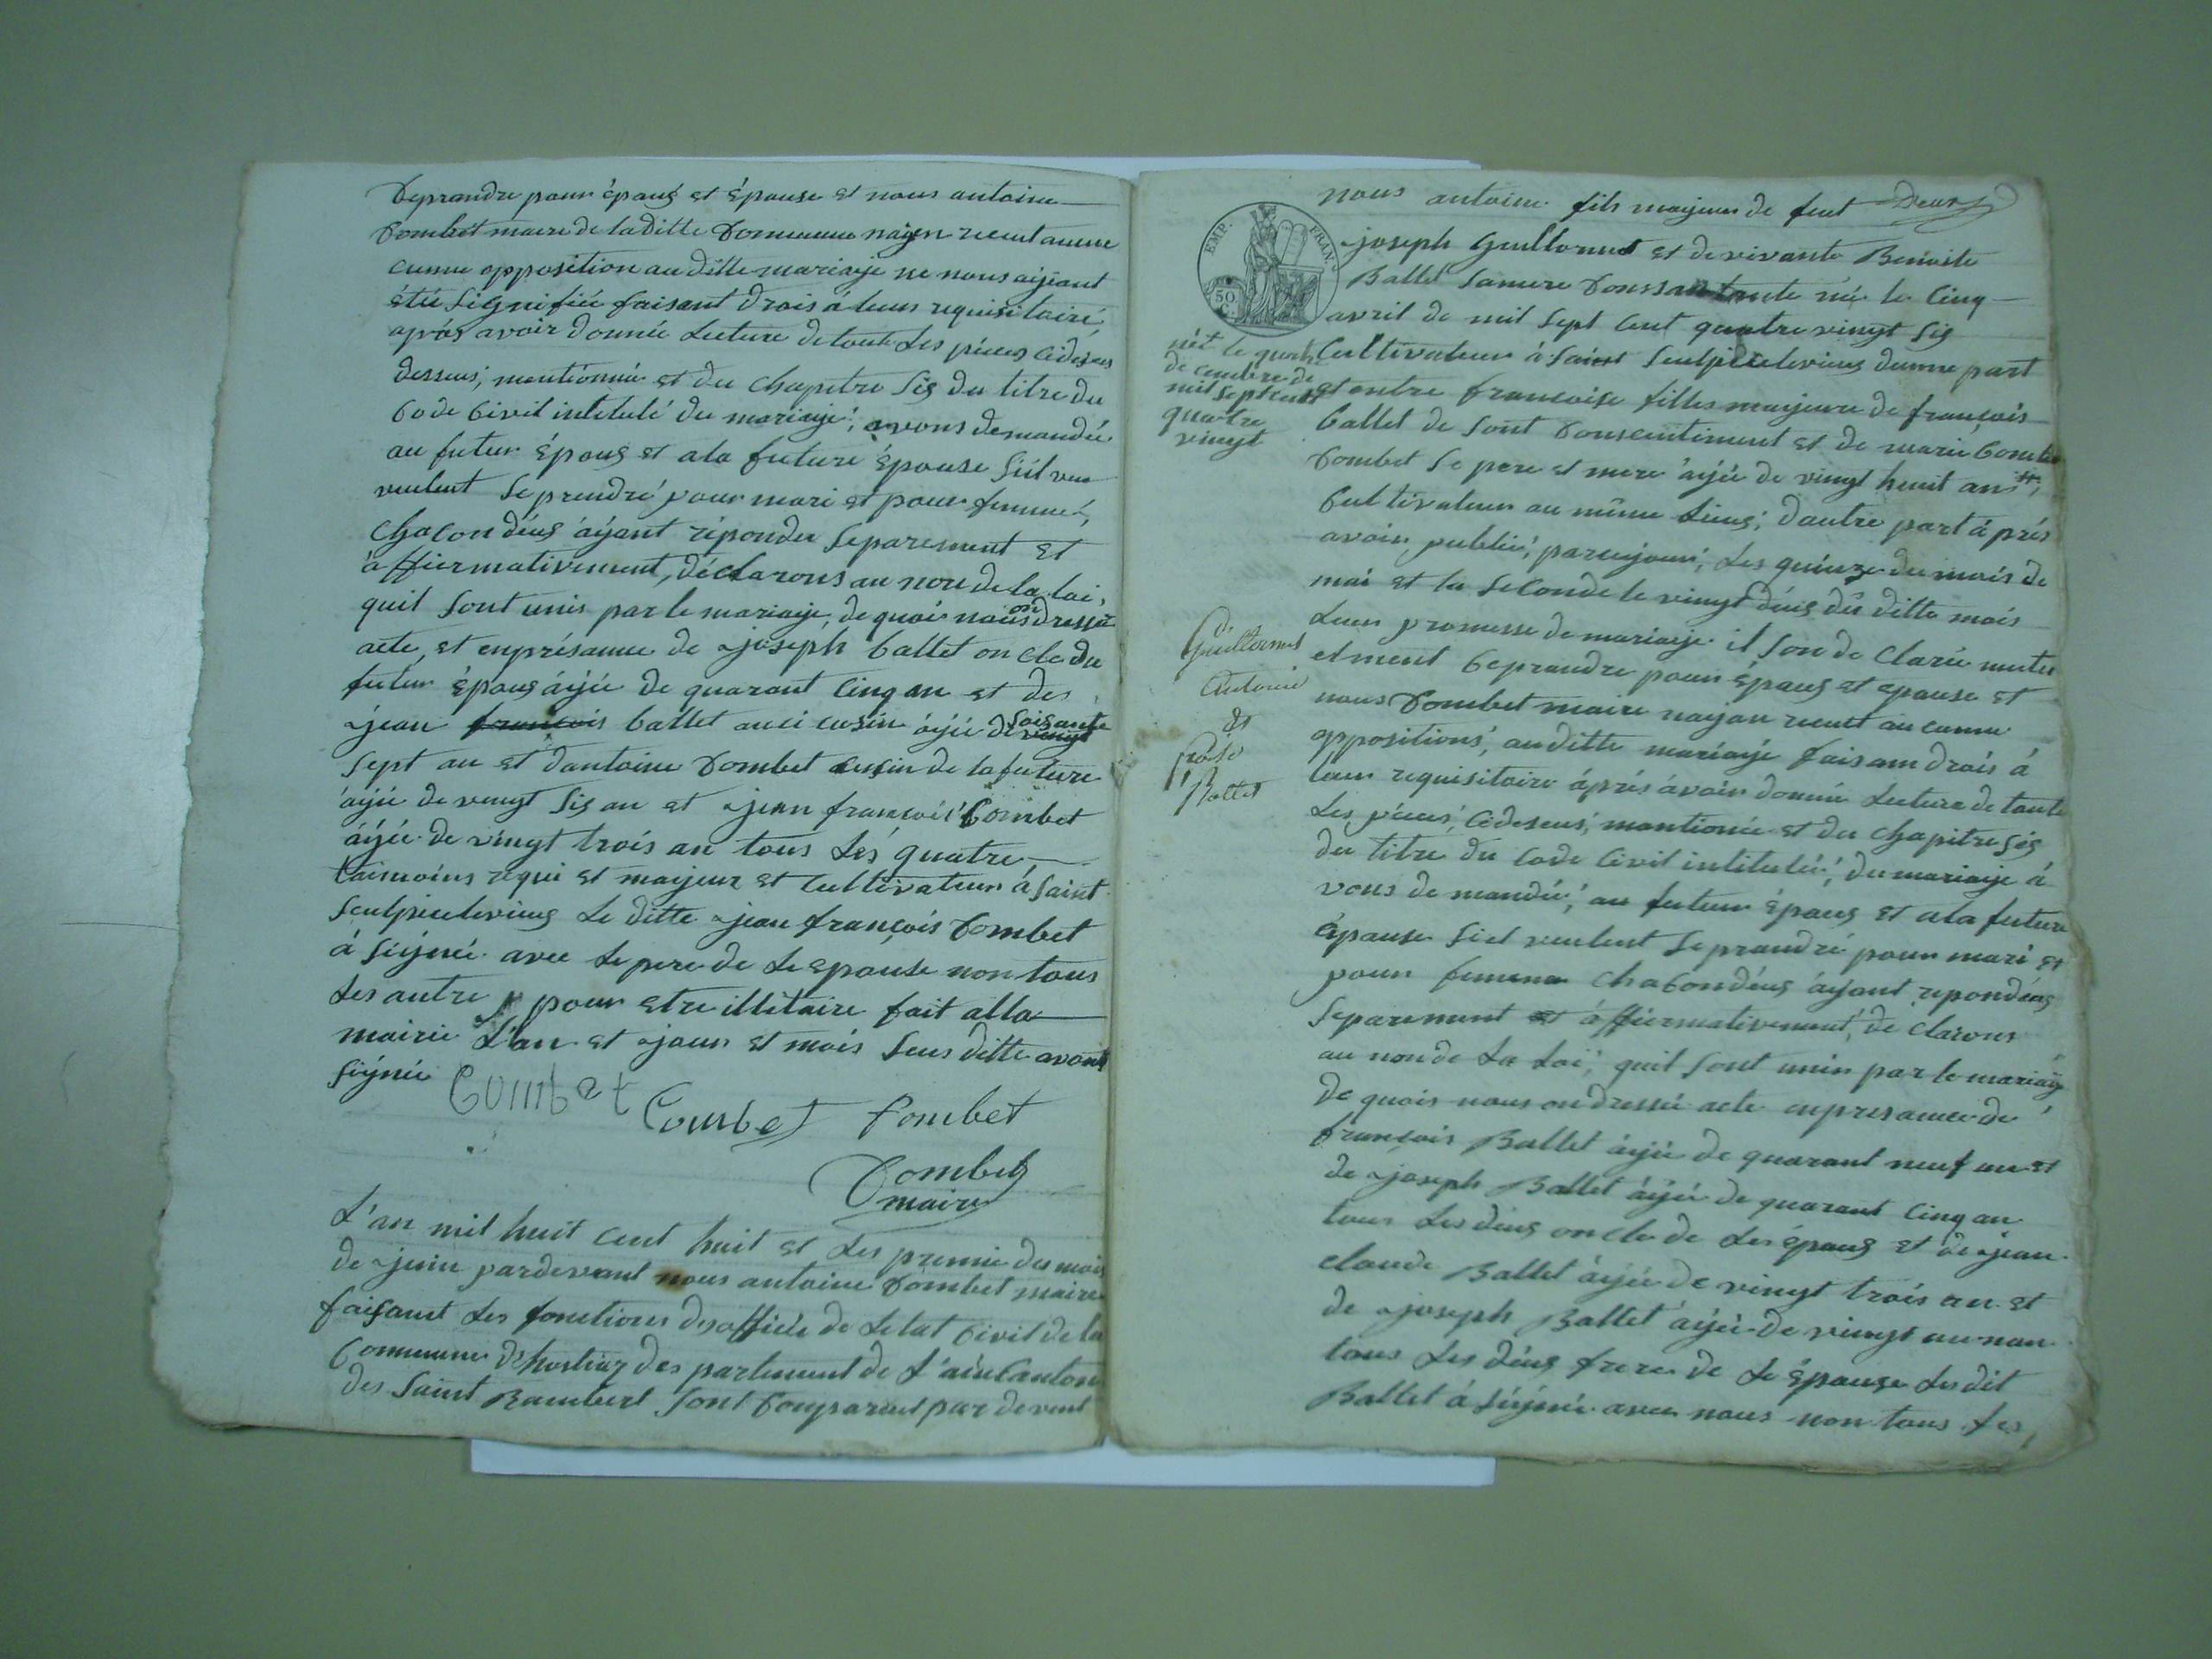 Deprandre pour épous et épouse et nous antoine
Combet maire de laditte Commune nayen recut aucune
cunne opposition au ditte mariaje ne nous aijeant
étéé signifiéé faisant drois á leur requisitoiré,
aprós avoir donnée Lecture de toute Les piéces cidesus
dessus; mentionnée et du chapitre sis du titre du
Code Civil intitulé du mariaje; avons demandée
au futur épous et ala future épouse siil
veulent se prendré pour mari et pour femme,
chacon déus áyant répondu separement et
áffiermativement, déclarons au non de la loi,
quil sont unis par le mariaje, de quoi nous on dressée
acte, et enprésance de joseph ballet oncle du
futur épous áijée de quarant cinq an et de
jean françois ballet auci cusin áijée de soisante vingt
sept an et dantoine Combet cusin de la future
áijée de vingt sis an et jean françois Combet
áijée de vingt trois an tous Lés quatre
taimoins réqui et mayeur et cultivateur á saint
seulpicelevieus Le ditte jean françois Combet
á séijnée avec Le pere de Lespouse non tous
Les autre pour etre illitaire fait alla
mairie L'an et jour et mois sus ditte avons
séijnée Combet Combet Combet
Combet
maire
L'an mil huit cent huit et Les premie du mois
de juin pardevant nous antoine Combet maire
faisant Les fonctions desofficie de Letat Civil de la
Commune d'hostiaz des partement de L'ain Canton
des saint Rambert sont Compareut par devent
nous antoine fils mayeur de feut Deus
EMP. FRAN.
50
C.
joseph Guillermet et de vivante Benoite
Ballet née le cinq
avril de mil sept cent quatre vingt sis
Cultivateur á saint seulpicelevieus dunne part
nét le quatr
de cembre de
mil sept cent
quatre
vingt
et entre francoise filles mayeure de françois
ballet de sont Consentiment et de marie
Combet se pere et mere áijée de vingt huit an
Cultivateur au même Lieus; dautre part á prés
avoir publié; Les quinze du mois de
mai et la seconde le vingt déus du ditte mois
Leur promesse de mariaje il son de clarée mutu
elment Deprandre pour épous et epouse et
nous Combet maire nayan recut au cunne
oppositions; au ditte mariaje faisam drois á
leur requisitoire áprés ávoir donnée Lecture de toute
Les piéces; cidesus; mantionée et du chapitre sis
du titre du code civil intitulée; du mariaje á
vous de mandée; au futeur épous et ala future
épouse siel veulent se prandré pour mari et
pour femme chacondéus áyant repondéus
separement et áffiermativement; de clarons
au non de La Loi; quil sont unin par le mariaje
de quois nous on dressée acte enpresance de
françois Ballet áijée de quarant neuf an et
de joseph Ballet áijée de quarant cinq an
tous Les déus oncle de Les épous et de jean
claude Ballet áijée de vingt trois an et
de joseph Ballet áijée de vingt
tous Les déus frere de Le épouse Les dit
Ballet á séijnée avec nous non tous Les
Guillermet
Antoine
et
Ballet